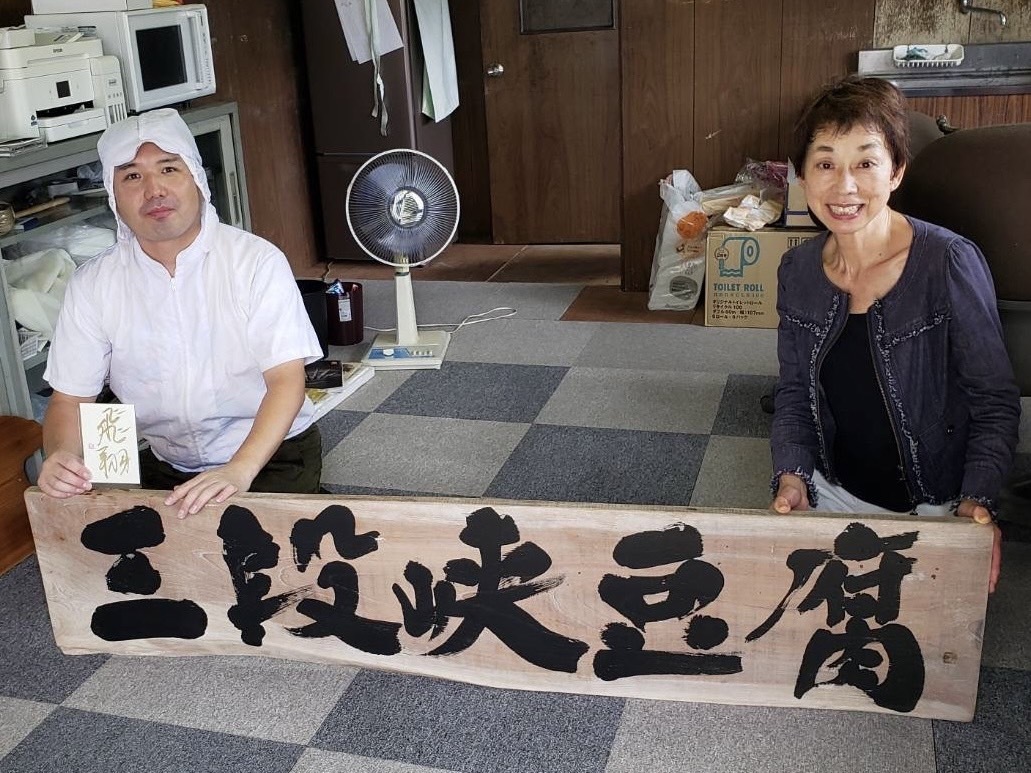 三段峡豆腐
飛翔
TOILET ROLL
EPSON